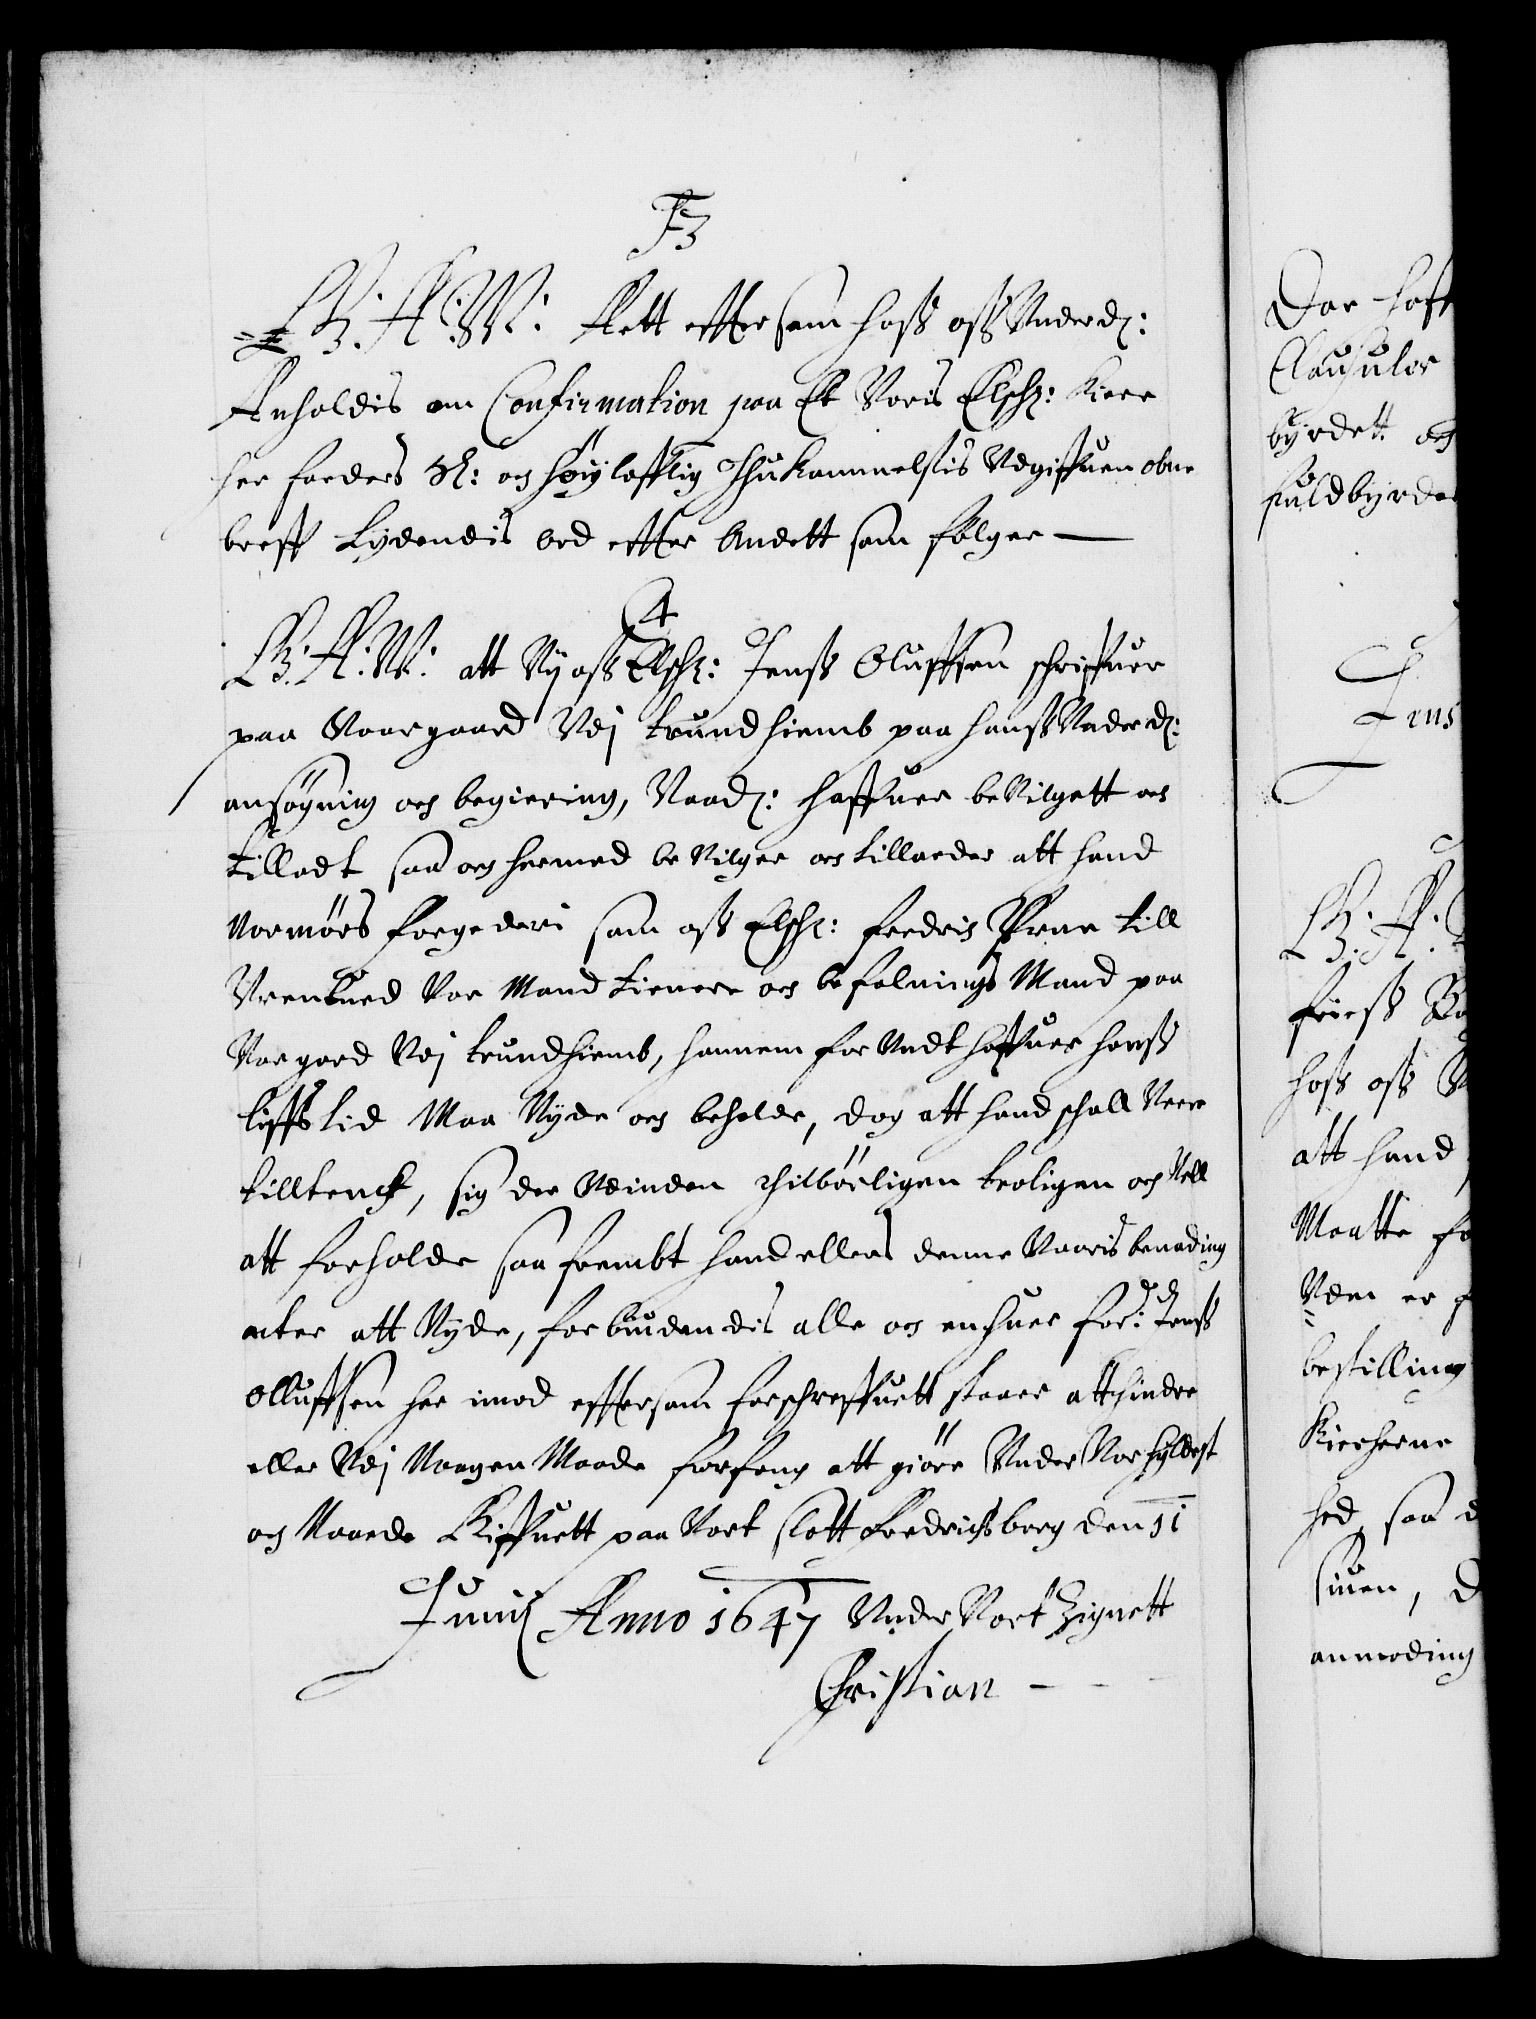 F3
G. A. W. Att efftersom hoß oß Underd:
Anholdis om Confirmation paa Et Voris Elsch: kiere
her faders S: och høylofflig Ihukommelsis Udgiffuen obne
breff Lydendis ord effter Andett som følger
4
G. A. W. att Wy oß Elsch: Jenß Oluffsen schriffuer
paa Waargaard Udj trundhiemb paa hanß Underd:
ansøgning och begiering, Naad: haffuer beVilgett och
tilladt saa och hermed beVilger och tillader att hand
Normørs fogederi som oß Elsch: fredrig Vrne till
Vrentued Vor Mand tienere och befalnings Mand paa
Vorgard Udj trundhiemb, hannem forUndt haffuer hanß
liffs tid Maa Nyde och beholde, dog att hand schall Vere
tilltenckt, sig der Udinden tilbørligen troligen och Vell
att forholde saa frembt hand ellers denne Vaaris benading
acter att Nyde, forbindendis alle och enhuer for: Jenß
Olluffsen her imod eftersom forschreffuett staar att hindre
eller Udj Nogen Maade forfang att giøre Under Vor hyldest
och Naade Giffuett paa Vort slott Fredrichsborg den 11
Junij Anno 1647 Under Vort Zignett
Christian
Dar haff
Clausuler
byrdett och
fuldbyrde
Jens
G. A.
friiß
hoß oß
att hand
Maatte fo
Udem er f
bestilling
Kircherne
hed, saa d
siuen, D
anmoding